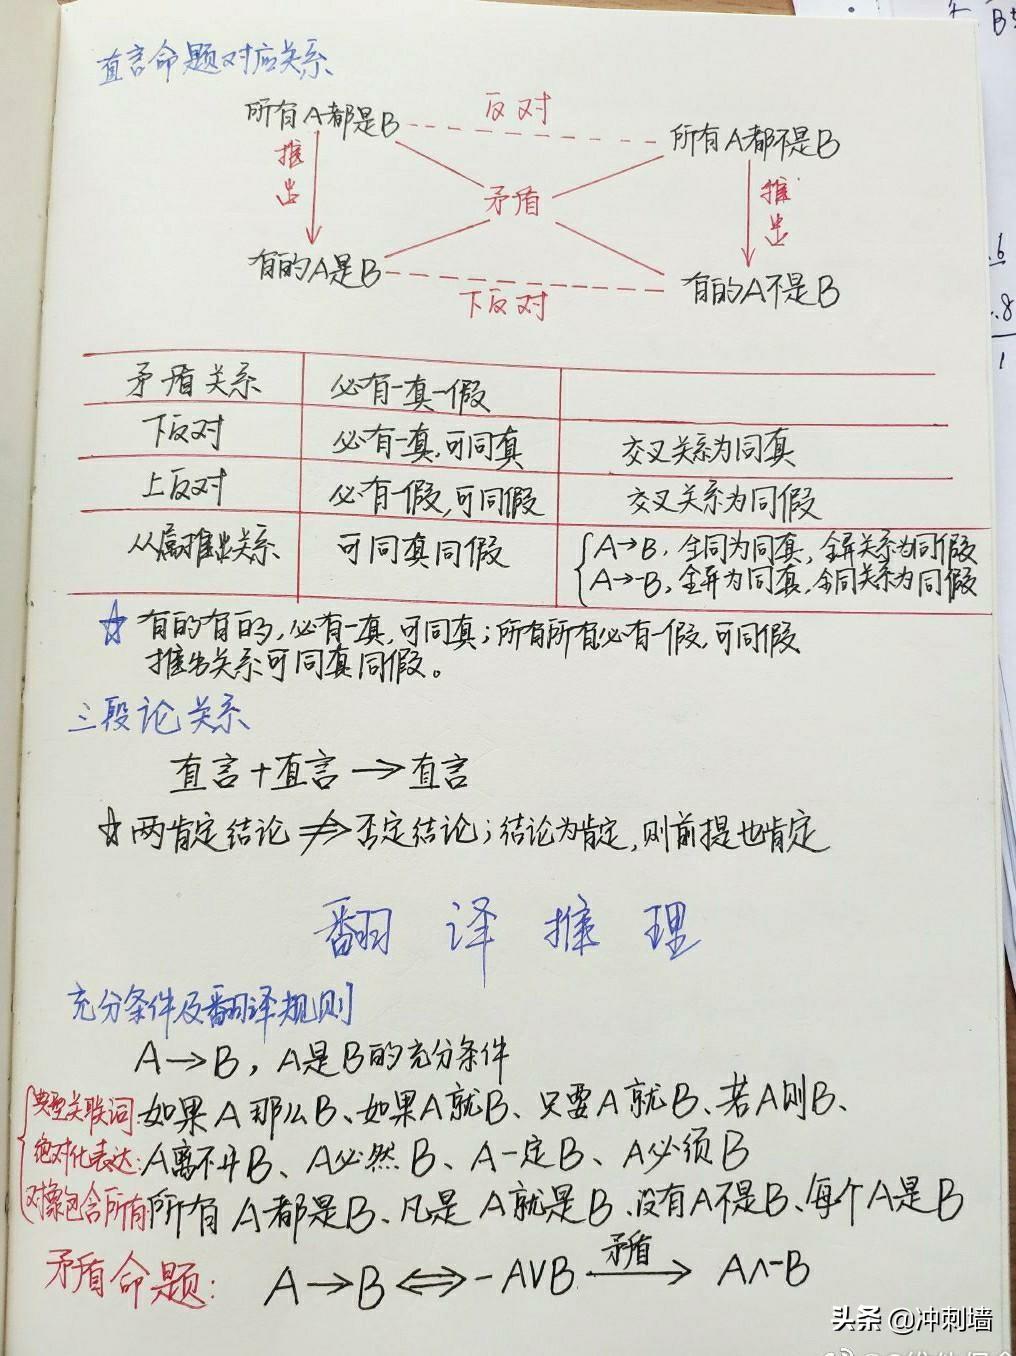 直言命题对应关系
所有A都是B 反对 所有A都不是B
推出 矛盾 推出
有的A是B 下反对 有的A不是B
矛盾关系 必有一真一假
下反对 必有一真,可同真 交叉关系为同真
上反对 必有一假,可同假 交叉关系为同假
从属推出关系 可同真同假 A→B,全同为同真,全异关系为同假
A→-B,全异为同真,全同关系为同假
☆ 有的有的,必有一真,可同真;所有所有必有一假,可同假
推出关系可同真同假。
三段论关系
直言+直言→直言
☆两肯定结论⇏否定结论;结论为肯定,则前提也肯定
翻译推理
充分条件及翻译规则
A→B,A是B的充分条件
典型关联词:如果A那么B、如果A就B、只要A就B、若A则B、
绝对化表达:A离不开B、A必然B、A一定B、A必须B
对象包含所有:所有A都是B、凡是A就是B、没有A不是B、每个A是B
矛盾命题: A→B⇔-A∨B 矛盾→ A∧-B
头条 @冲刺墙
B
6
.8
1